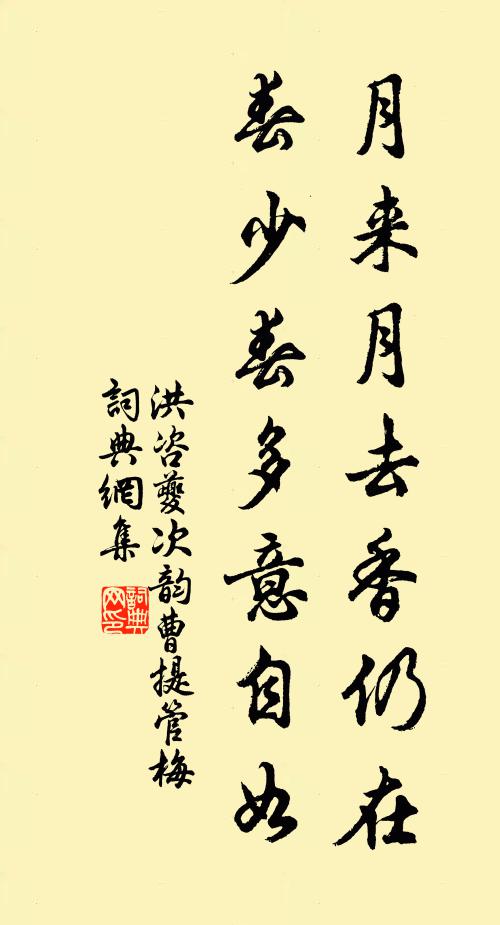 月来月去香仍在
春少春多意自如
洪咨夔次韵曹提管梅
詞典網集
詞典网印